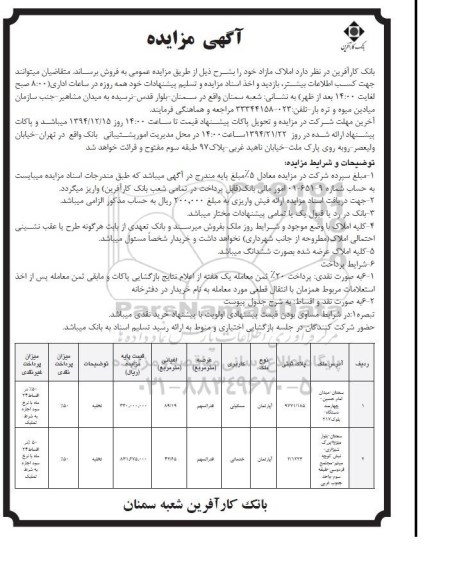 آگهی مزایده
بانک کارآفرین
بانک کارآفرین در نظر دارد املاک مازاد خود را بشرح ذیل از طریق مزایده عمومی به فروش برساند. متقاضیان میتوانند
جهت کسب اطلاعات بیشتر، بازدید و اخذ اسناد مزایده و تسلیم پیشنهادات خود همه روزه در ساعات اداری(۸:۰۰ صبح
لغایت ۱۴:۰۰ بعد از ظهر) به نشانی: شعبه سمنان واقع در سمنان-بلوار قدس-نرسیده به میدان مشاهیر-جنب سازمان
میادین میوه و تره بار-تلفن:۰۲۳-۳۳۳۴۴۱۵۸ مراجعه و هماهنگی فرمایند.
آخرین مهلت شرکت در مزایده و تحویل پاکات پیشنهاد قیمت تا ساعت ۱۴:۰۰ روز ۱۳۹۴/۱۲/۱۵ میباشد و پاکات
پیشنهاد ارائه شده در روز ۱۳۹۴/۱۲/۲۲ ساعت ۱۴:۰۰ در محل مدیریت امورپشتیبانی بانک واقع در تهران-خیابان
ولیعصر-روبه روی پارک ملت-خیابان ناهید غربی-پلاک۹۷ طبقه سوم مفتوح و قرائت خواهد شد
توضیحات و شرایط مزایده:
۱-مبلغ سپرده شرکت در مزایده معادل ۵٪مبلغ پایه مندرج در آگهی میباشد که طبق مندرجات اسناد مزایده میبایست
به حساب شماره ۰۱۰۶۵۱۰۹ امور مالی بانک(قابل پرداخت در تمامی شعب بانک کارآفرین) واریز میگردد.
۲-جهت دریافت اسناد مزایده ارائه فیش واریزی به مبلغ ۲۰۰,۰۰۰ ریال به حساب مذکور الزامی میباشد.
۳-بانک در رد یا قبول یک یا تمامی پیشنهادات مختار میباشد.
۴-کلیه املاک با وضع موجود و شرایط روز ملک بفروش میرسند و بانک تعهدی از بابت هرگونه طرح یا عقب نشینی
احتمالی املاک(مطروحه از جانب شهرداری) نخواهد داشت و خریدار شخصاً مسئول میباشد.
۵-کلیه املاک عرضه شده بصورت ششدانگ میباشد.
۶-شرایط پرداخت
۱-۶به صورت نقدی: پرداخت ۲۰٪ ثمن معامله یک هفته از اعلام نتایج بازگشایی پاکات و مابقی ثمن معامله پس از اخذ
استعلامات مربوط همزمان با انتقال قطعی مورد معامله به نام خریدار در دفترخانه
۲-۶به صورت نقد و اقساط: به شرح جدول پیوست
تبصره۱:در شرایط مساوی بودن قیمت پیشنهادی اولویت با پیشنهاد خرید نقدی میباشد.
حضور شرکت کنندگان در جلسه بازگشایی اختیاری و منوط به ارائه رسید تسلیم اسناد به بانک میباشد.
ParsNamadData
۰۲۱-۸۸۳۴۹۶۷۰-۵
ردیف آدرس ملک پلاک ثبتی نوع ملک کاربری عرصه (مترمربع) اعیانی (مترمربع) قیمت پایه مزایده (ریال) توضیحات میزان پرداخت نقدی میزان پرداخت غیرنقدی
۱ آپارتمان مسکونی قدرالسهم تخلیه ۵۰٪
۲ آپارتمان خدماتی قدرالسهم تخلیه ۵۰٪
بانک کارآفرین شعبه سمنان